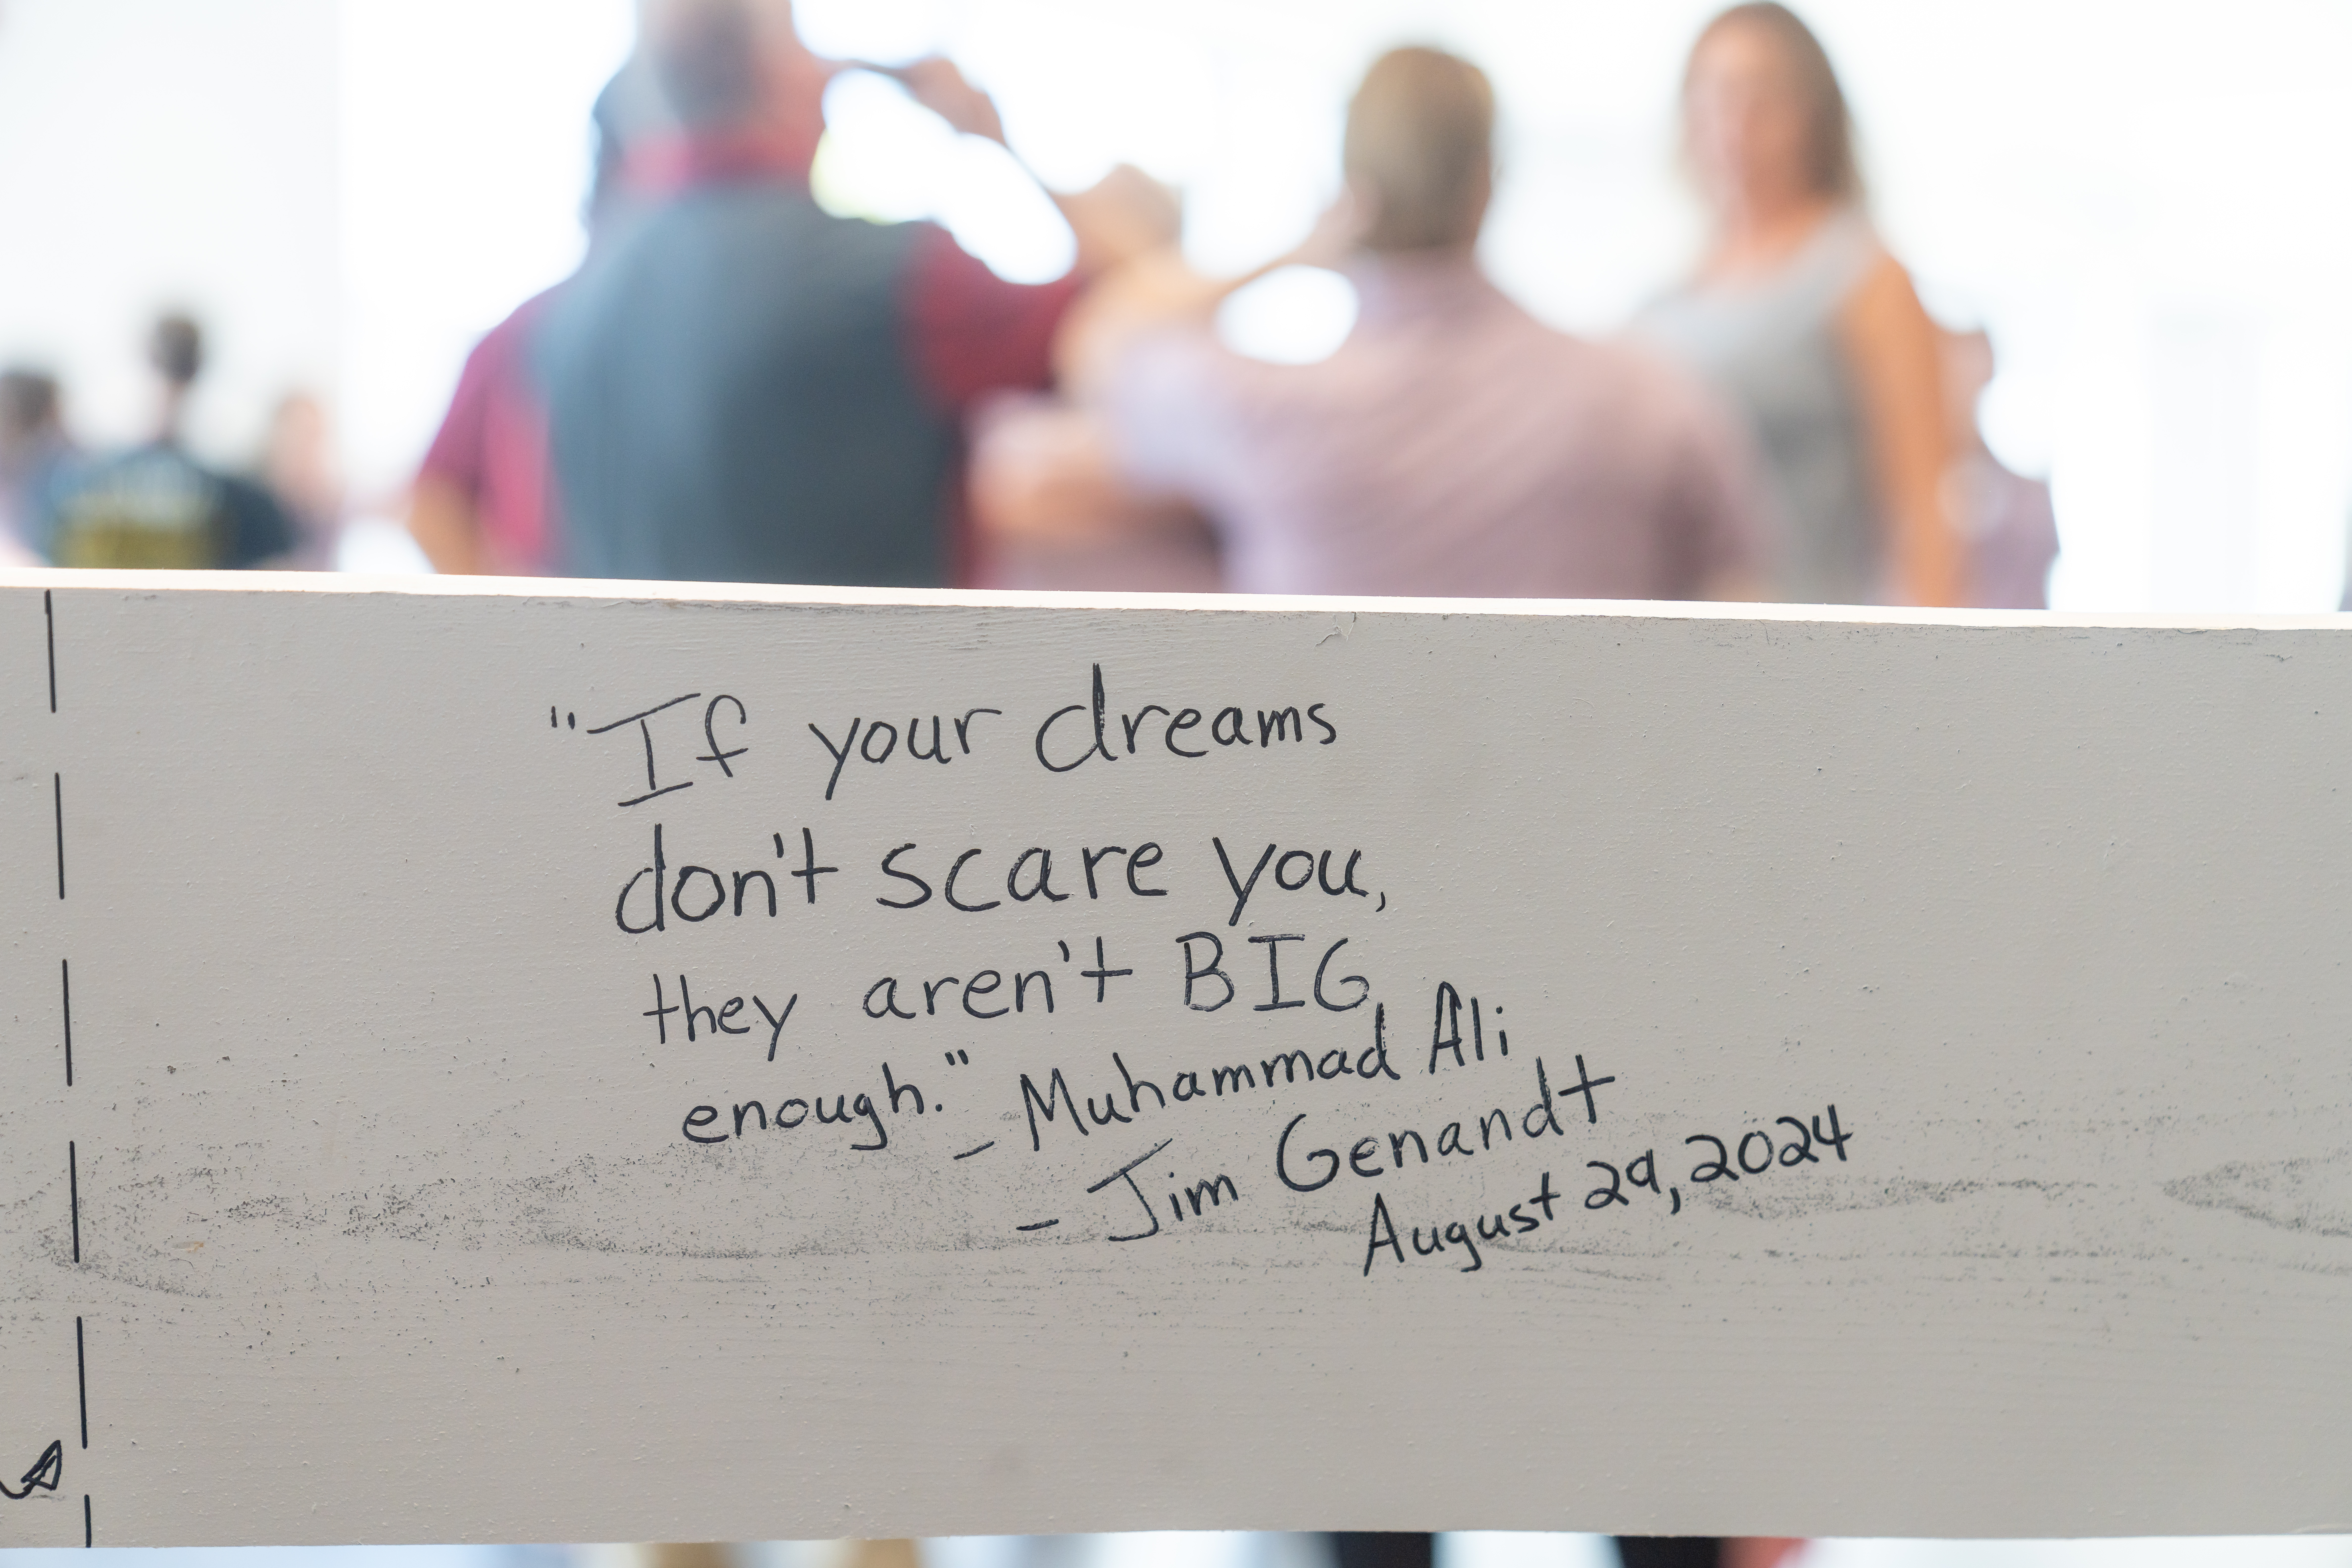 "If your dreams
don't scare you,
they aren't BIG
enough." - Muhammad Ali
- Jim Genandt
August 29, 2024